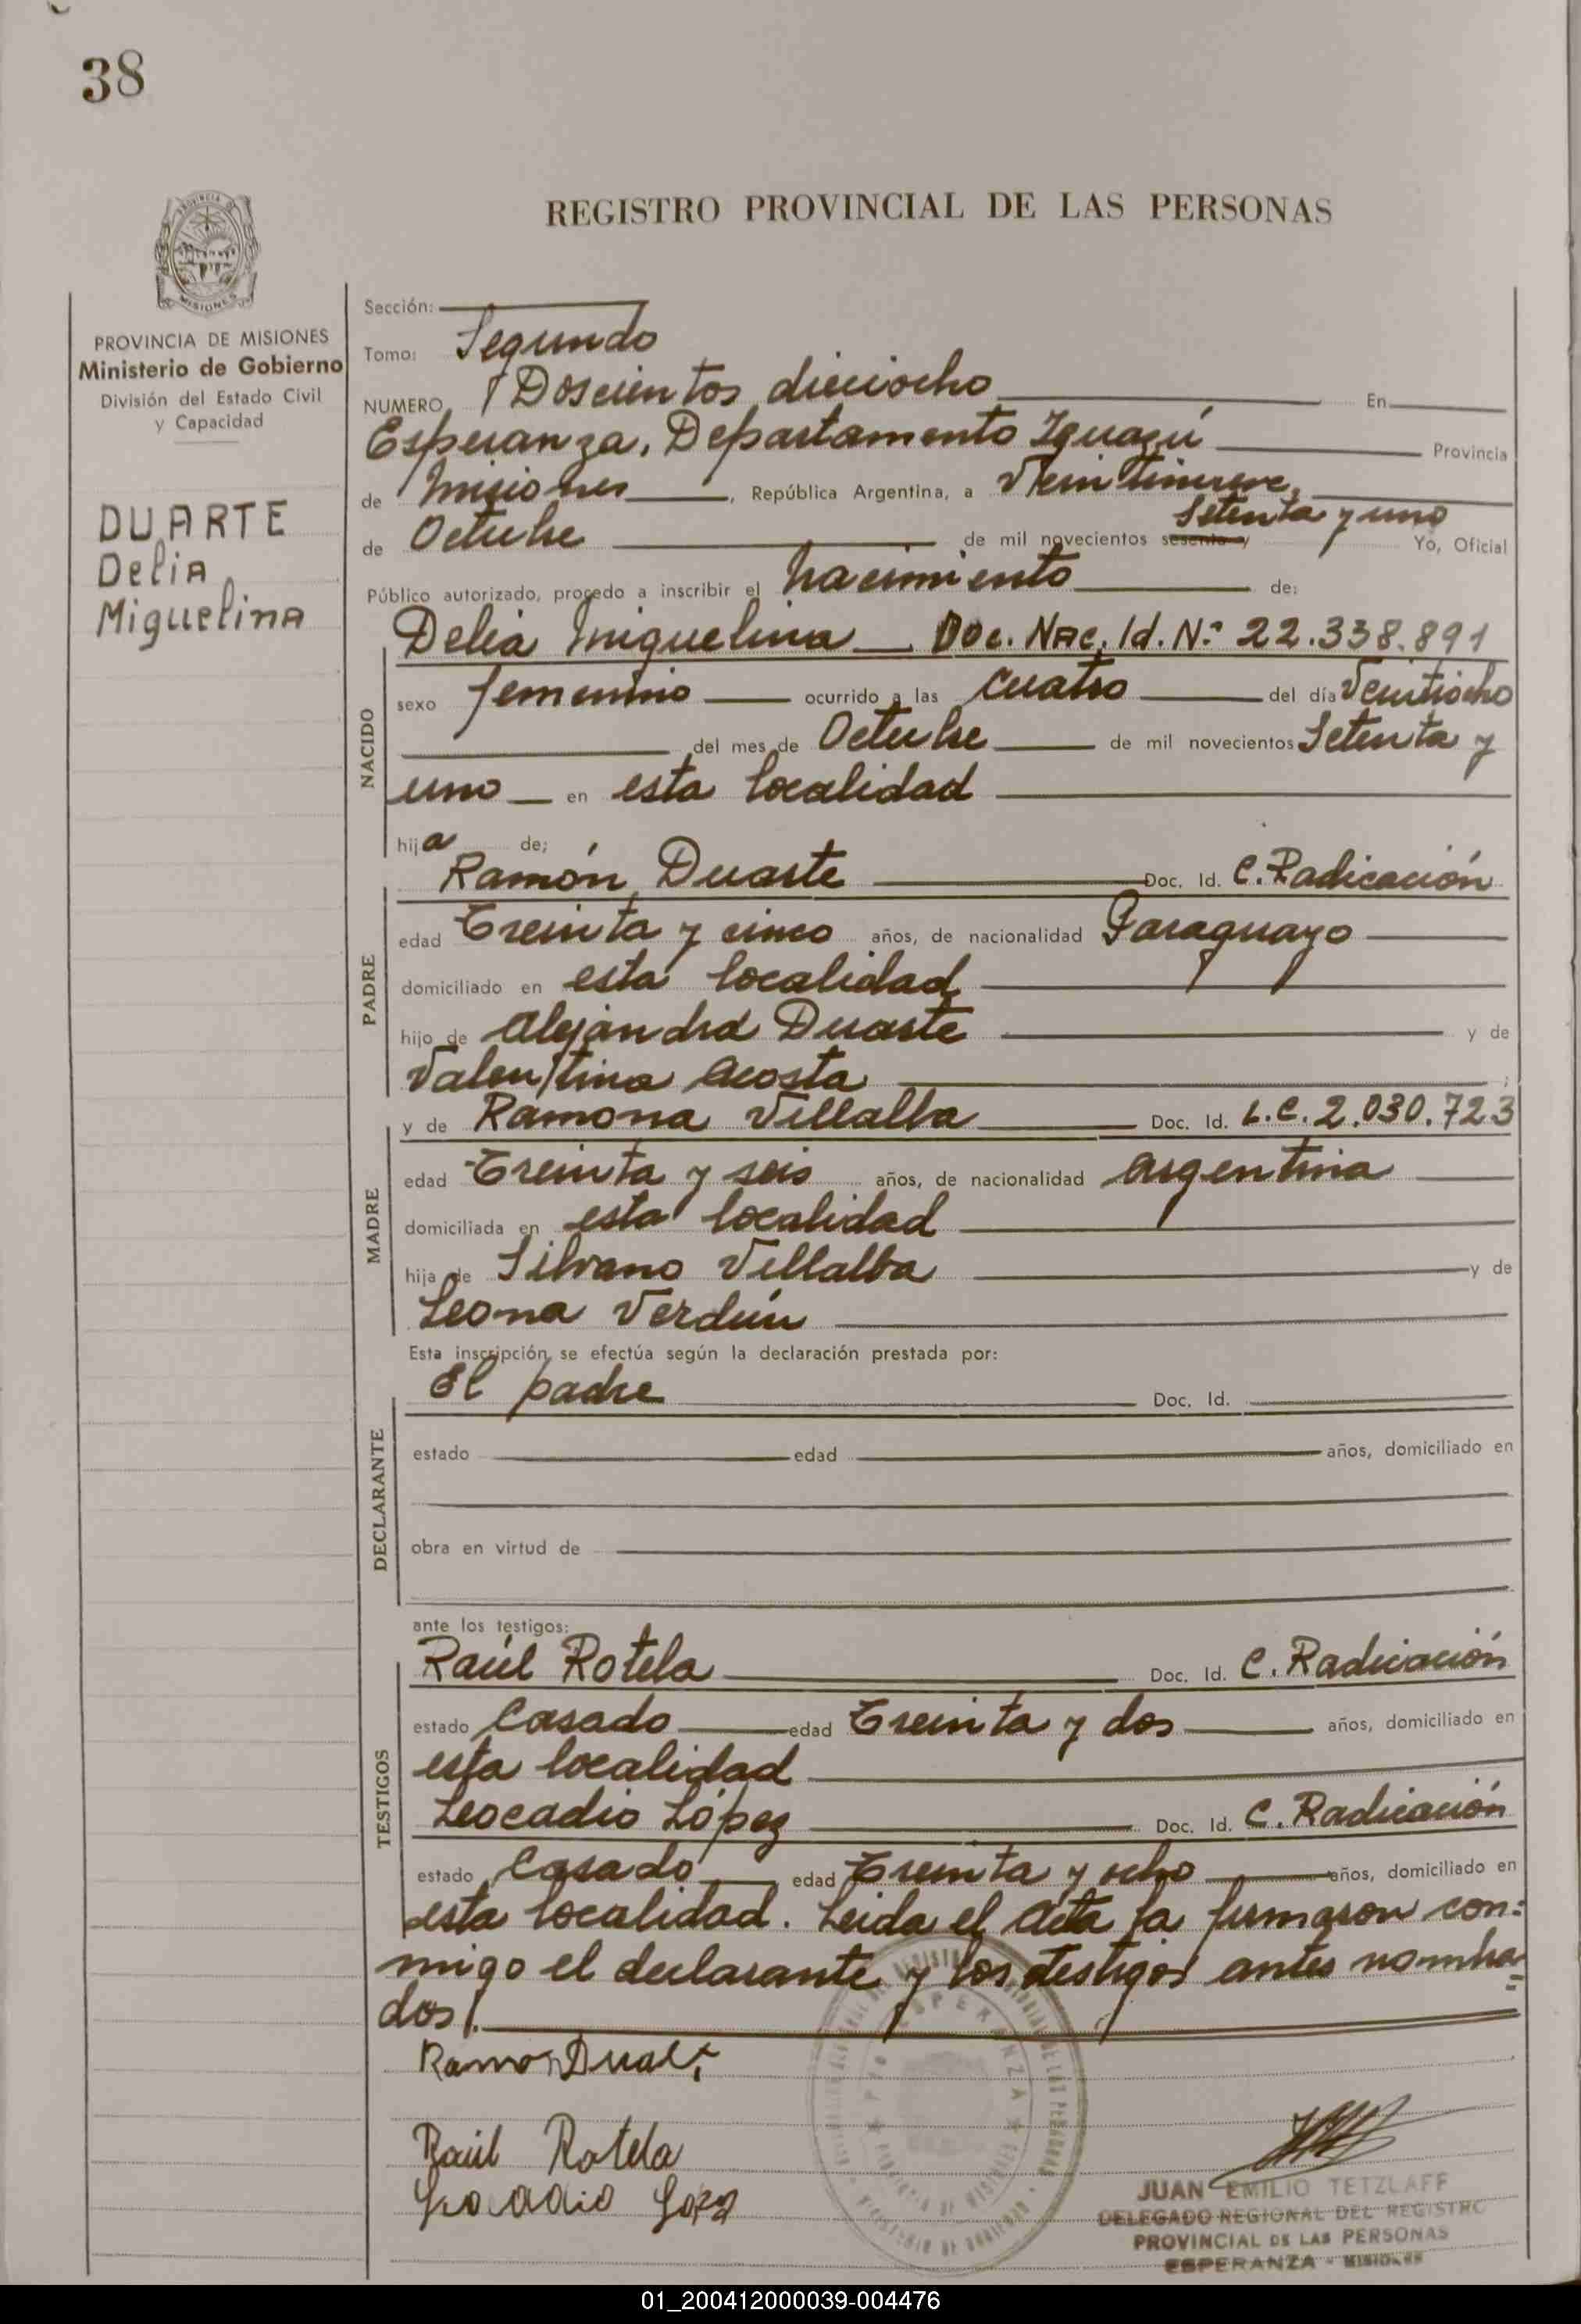 38
REGISTRO PROVINCIAL DE LAS PERSONAS
MISIONES
PROVINCIA DE MISIONES
Ministerio de Gobierno
División del Estado Civil
y Capacidad
DUARTE
Delia
Miguelina
Sección:
Tomo: Segundo
NUMERO Doscientos dieciocho En
Esperanza, Departamento Iguazú Provincia
de Misiones, República Argentina, a Veintinueve
de Octubre de mil novecientos sesenta y Setenta y uno Yo, Oficial
Público autorizado, procedo a inscribir el nacimiento de:
Delia Miguelina Doc. Nac. Id. N.º 22.338.891
NACIDO
sexo femenino ocurrido a las cuatro del día Veintiocho
del mes de Octubre de mil novecientos Setenta y
uno en esta localidad
hija de:
PADRE
Ramón Duarte Doc. Id. C. Radicación
edad Treinta y cinco años, de nacionalidad Paraguayo
domiciliado en esta localidad
hijo de Alejandra Duarte y de
Valentina Acosta ;
MADRE
y de Ramona Villalba Doc. Id. L.C. 2.030.723
edad Treinta y seis años, de nacionalidad argentina
domiciliada en esta localidad
hija de Silvano Villalba y de
Leona Verdún
Esta inscripción, se efectúa según la declaración prestada por:
DECLARANTE
El padre Doc. Id.
estado edad años, domiciliado en
obra en virtud de
ante los testigos:
TESTIGOS
Raúl Rotela Doc. Id. C. Radicación
estado Casado edad Treinta y dos años, domiciliado en
esta localidad
Leocadio López Doc. Id. C. Radicación
estado Casado edad Treinta y ocho años, domiciliado en
esta localidad. Leida el acta la firmaron con=
migo el declarante y los testigos antes nombra=
dos.
Ramon Duarte
Raúl Rotela
JUAN EMILIO TETZLAFF
DELEGADO REGIONAL DEL REGISTRO
PROVINCIAL DE LAS PERSONAS
ESPERANZA - MISIONES
01_200412000039-004476